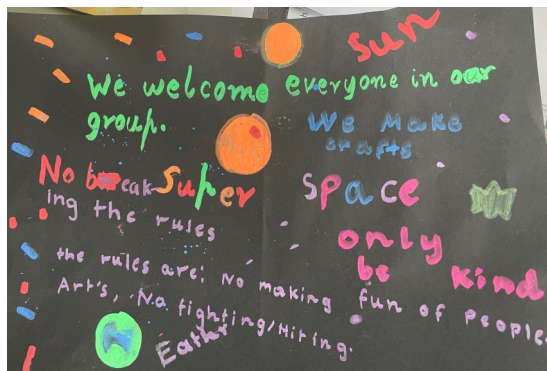 Sun
We welcome everyone in our
group.
We Make
crafts
No break-
ing the rules
Super
Space
only
be kind
the rules are: No making fun of people.
Art's, No fighting/Hiting.
Eathr